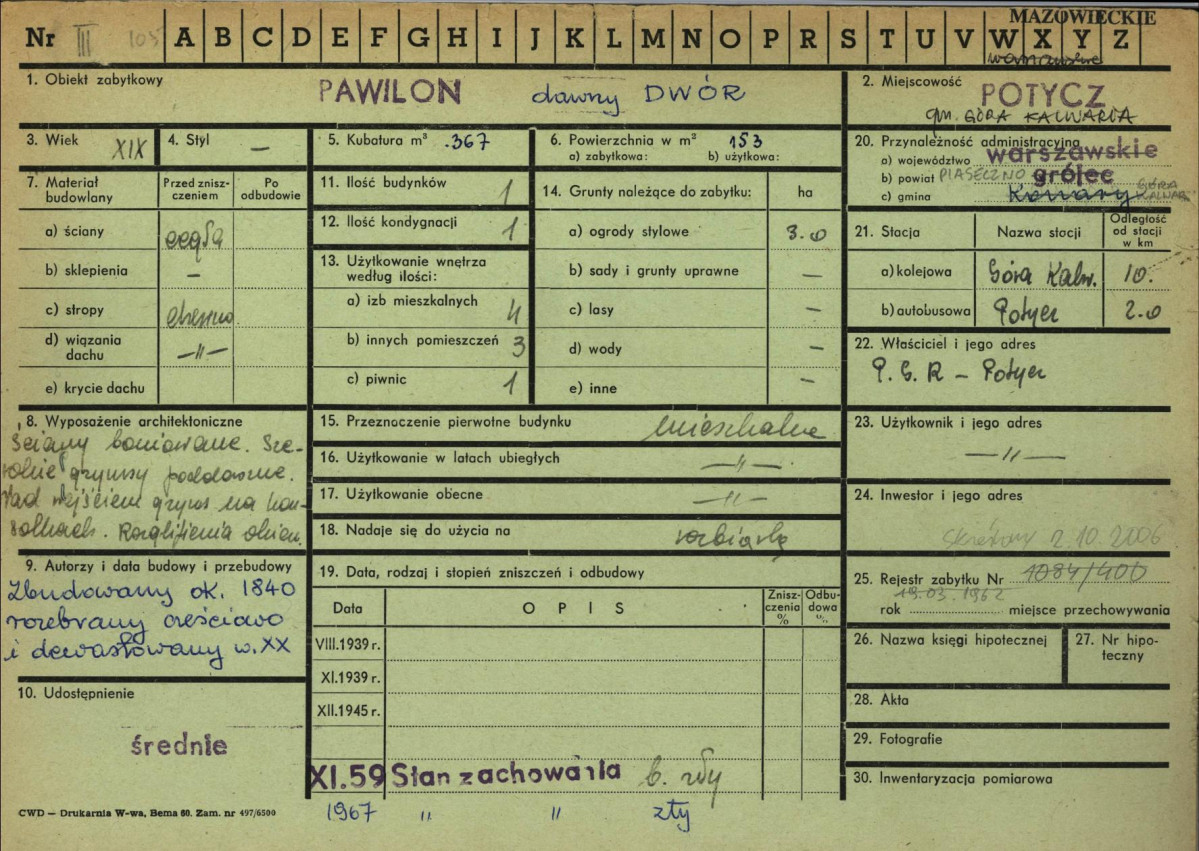 MAZOWIECKIE
Nr III 105 A B C D E F G H I J K L M N O P R S T U V W X Y Z
warszawskie
1. Obiekt zabytkowy
PAWILON dawny DWÓR
2. Miejscowość
POTYCZ
gm. GÓRA KALWARIA
3. Wiek XIX
4. Styl —
5. Kubatura m³ 367
6. Powierzchnia w m² 153
a) zabytkowa: b) użytkowa:
20. Przynależność administracyjna
a) województwo warszawskie
b) powiat PIASECZNO grójec
c) gmina Konary GÓRA KALWAR.
7. Materiał budowlany
Przed zniszczeniem
Po odbudowie
a) ściany cegła
b) sklepienia —
c) stropy drewno
d) wiązania dachu —"—
e) krycie dachu
11. Ilość budynków 1
12. Ilość kondygnacji 1
13. Użytkowanie wnętrza według ilości:
a) izb mieszkalnych 4
b) innych pomieszczeń 3
c) piwnic 1
14. Grunty należące do zabytku: ha
a) ogrody stylowe 3.0
b) sady i grunty uprawne —
c) lasy —
d) wody —
e) inne —
21. Stacja Nazwa stacji Odległość od stacji w km
a) kolejowa Góra Kalw. 10.
b) autobusowa Potycz 2.0
22. Właściciel i jego adres
P.G.R — Potycz
8. Wyposażenie architektoniczne
Ściany boniowane. Sze-
rokie gzymsy poddaszne.
Nad wejściem gzyms na kon-
solkach. Rozglifienia okien.
15. Przeznaczenie pierwotne budynku mieszkalne
16. Użytkowanie w latach ubiegłych —"—
17. Użytkowanie obecne —"—
18. Nadaje się do użycia na rozbiórkę
23. Użytkownik i jego adres
—"—
24. Inwestor i jego adres
Skreślony 2.10.2006
9. Autorzy i data budowy i przebudowy
Zbudowany ok. 1840
rozebrany częściowo
i dewastowany w. XX
19. Data, rodzaj i stopień zniszczeń i odbudowy
Data OPIS Zniszczenia % Odbudowa %
VIII.1939 r.
XI.1939 r.
XII.1945 r.
XI.59 Stan zachowania b. zły
1967 " " zły
25. Rejestr zabytku Nr 1084/400
19.03.1962
rok miejsce przechowywania
26. Nazwa księgi hipotecznej
27. Nr hipoteczny
10. Udostępnienie
średnie
28. Akta
29. Fotografie
30. Inwentaryzacja pomiarowa
CWD — Drukarnia W-wa, Bema 60. Zam. nr 497/6500